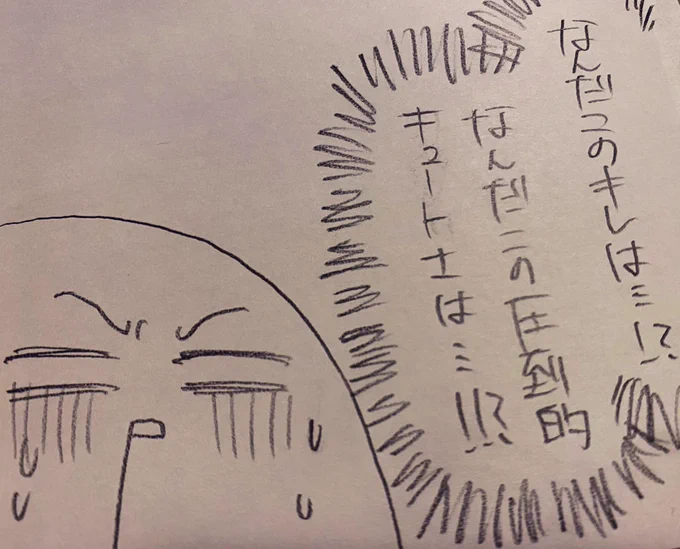 なんだこのキレは…!?
なんだこの圧倒的
キュートさは…!!?